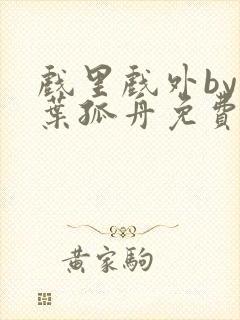 戲里戲外by
葉孤舟免費
黃家駒